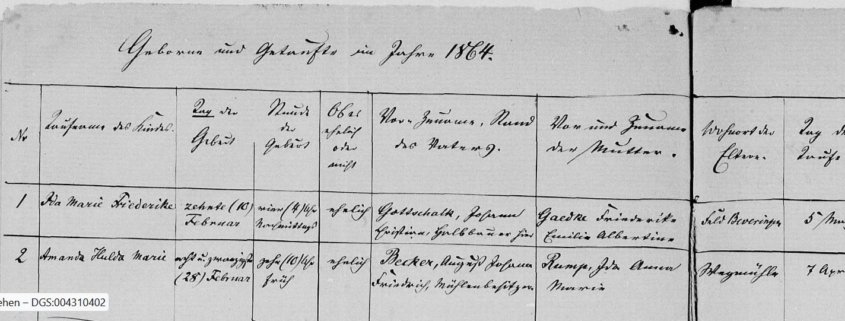 Geborne und Getaufte im Jahre 1864.
Nr
Taufname des Kindes.
Tag der
Geburt
Stunde
der
Geburt
Ob es
ehelich
oder
nicht
Vor- Zuname, Stand
des Vaters.
Vor und Zuname
der Mutter.
Wohnort der
Eltern.
Tag de
Taufe
1
Ida Marie Friederike
zehnte (10)
Februar
vier (4) Uhr
Nachmittags
ehelich
Gottschalk, Johann
Christian, Halbbauer
Gaedke Friederike
Emilie Albertine
Feld Beveringen
5
2
Amanda Hulda Marie
acht u. zwanzigste
(28) Februar
zehn (10) Uhr
früh
ehelich
Becker, August Johann
Friedrich, Mühlenbesitzer
Rump, Ida Anna
Marie
Wegmühle
7 Apr
ehen – DGS:004310402